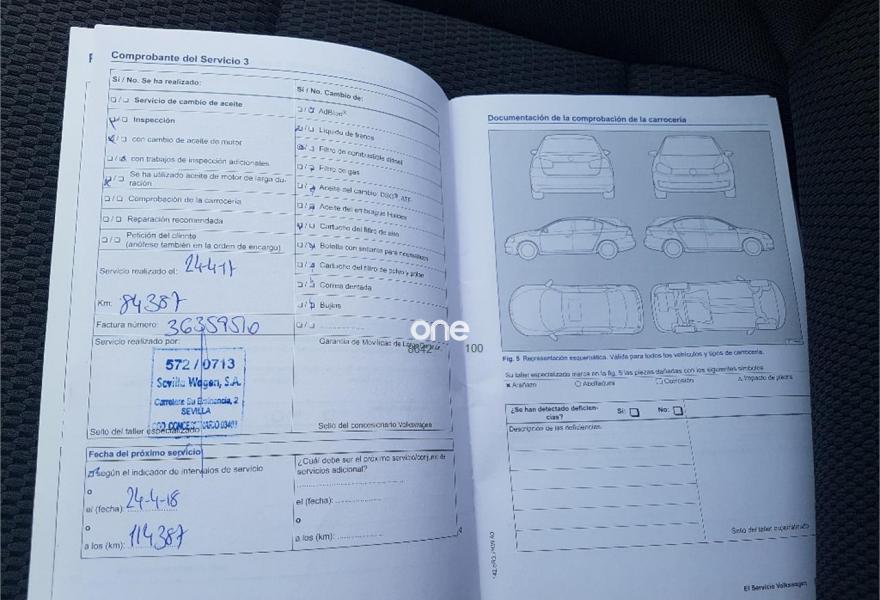 Comprobante del Servicio 3
Sí / No. Se ha realizado:
Servicio de cambio de aceite
Inspección
con cambio de aceite de motor
con trabajos de inspección adicionales
Se ha utilizado aceite de motor de larga du-
ración
Comprobación de la carrocería
Reparación recomendada
Petición del cliente
(anótese también en la orden de encargo)
Servicio realizado el: 24-4-17
Km: 84387
Factura número: 36359510
Servicio realizado por:
572 / 0713
Sevilla Wagen, S.A.
Carretera Su Eminencia, 2
SEVILLA
Sello del taller especializado
Sí / No. Cambio de:
AdBlue®
Líquido de frenos
Filtro de combustible diésel
Filtro de gas
Aceite del cambio DSG®, ATF
Aceite del embrague Haldex
Cartucho del filtro de aire
Botella con sellante para neumáticos
Cartucho del filtro de polvo y polen
Correa dentada
Bujías
Garantía de Movilidad de
Sello del concesionario Volkswagen
Fecha del próximo servicio
según el indicador de intervalos de servicio
o
el (fecha): 24-4-18
o
a los (km): 114387
¿Cuál debe ser el próximo servicio/conjunto de
servicios adicional?
el (fecha):
o
a los (km):
one
100
Documentación de la comprobación de la carrocería
Fig. 5 Representación esquemática. Válida para todos los vehículos y tipos de carrocería.
Su taller especializado marca en la fig. 5 las piezas dañadas con los siguientes símbolos
Arañazo
Abolladura
Corrosión
Impacto de piedra
¿Se han detectado deficien-
cias?
Sí:
No:
Descripción de las deficiencias:
Sello del taller especializado
El Servicio Volkswagen